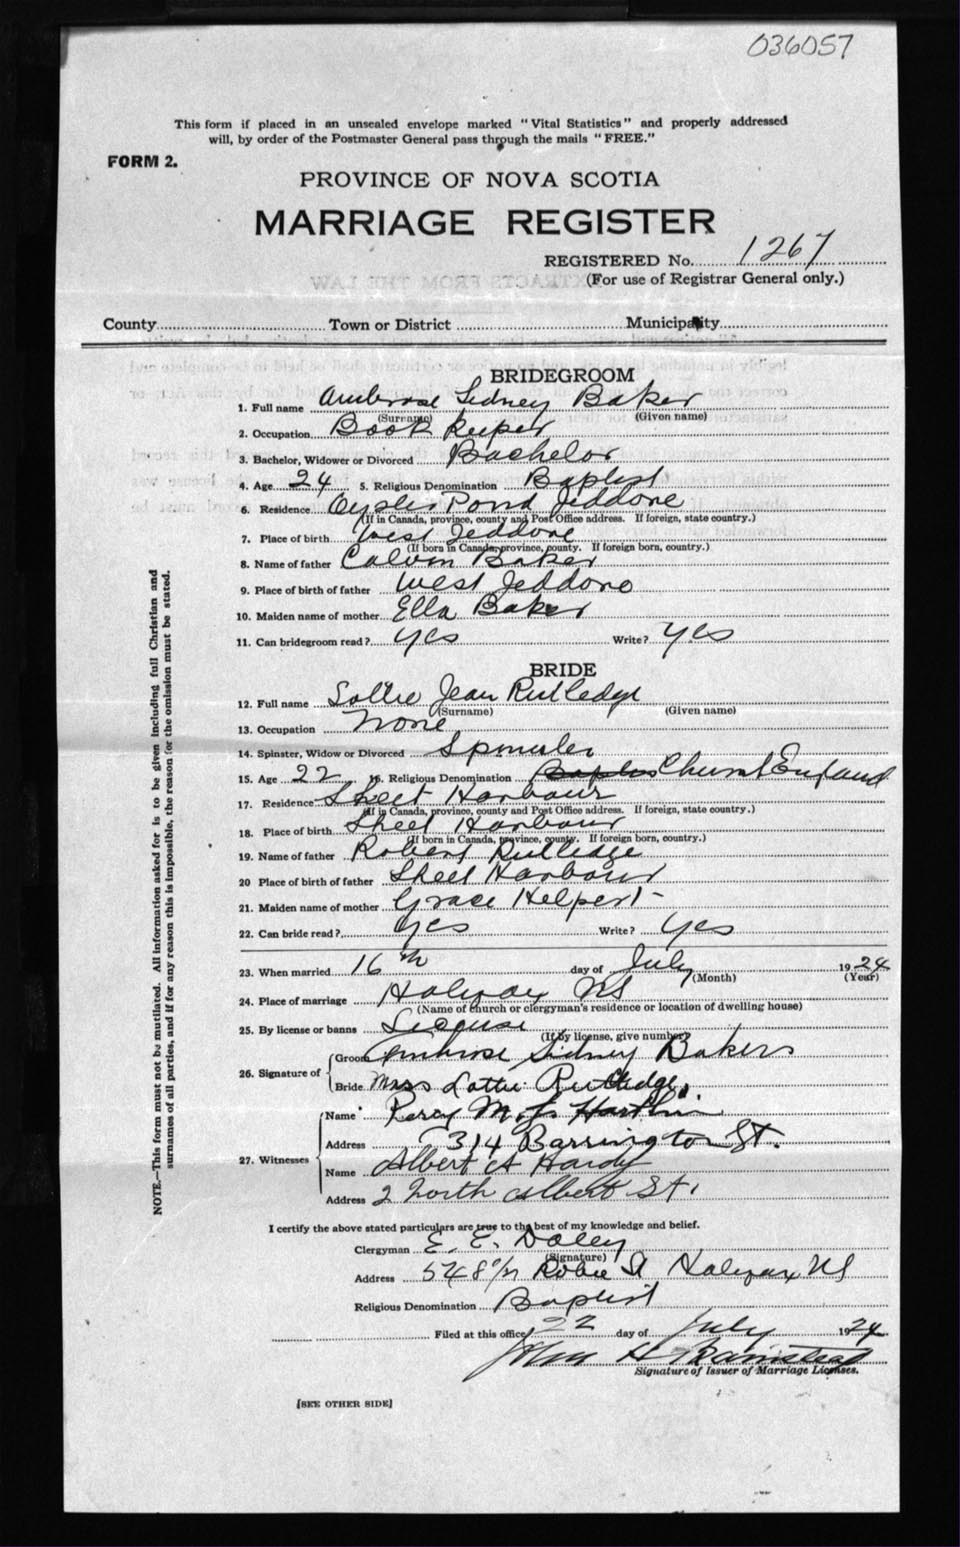 036057
This form if placed in an unsealed envelope marked "Vital Statistics" and properly addressed
will, by order of the Postmaster General pass through the mails "FREE."
FORM 2.
PROVINCE OF NOVA SCOTIA
MARRIAGE REGISTER
REGISTERED No. 1267
(For use of Registrar General only.)
County Town or District Municipality
BRIDEGROOM
1. Full name Ambrose Sidney Baker
(Surname) (Given name)
2. Occupation Book Keeper
3. Bachelor, Widower or Divorced Bachelor
4. Age 24 5. Religious Denomination Baptist
6. Residence Oyster Pond Jeddore
(If in Canada, province, county and Post Office address. If foreign, state country.)
7. Place of birth West Jeddore
(If born in Canada, province, county. If foreign born, country.)
8. Name of father Calvin Baker
9. Place of birth of father West Jeddore
10. Maiden name of mother Ella Baker
11. Can bridegroom read? Yes Write? Yes
BRIDE
12. Full name Lottie Jean Rutledge
(Surname) (Given name)
13. Occupation None
14. Spinster, Widow or Divorced Spinster
15. Age 22 16. Religious Denomination Baptist Church England
17. Residence Sheet Harbour
(If in Canada, province, county and Post Office address. If foreign, state country.)
18. Place of birth Sheet Harbour
(If born in Canada, province, county. If foreign born, country.)
19. Name of father Robert Rutledge
20 Place of birth of father Sheet Harbour
21. Maiden name of mother Grace Helpert
22. Can bride read? Yes Write? Yes
23. When married 16th day of July 1924
(Month) (Year)
24. Place of marriage Halifax NS
(Name of church or clergyman's residence or location of dwelling house)
25. By license or banns License
(If by license, give number)
26. Signature of Groom Ambrose Sidney Baker
Bride Miss Lottie Rutledge
27. Witnesses Name Percy M.
Address 314 Barrington St.
Name Albert A Hardy
Address 2 North Albert St.
I certify the above stated particulars are true to the best of my knowledge and belief.
Clergyman E. E. Daley
(Signature)
Address 548 1/2 Robie St Halifax NS
Religious Denomination Baptist
Filed at this office 22 day of July 1924
John H
Signature of Issuer of Marriage Licenses.
[SEE OTHER SIDE]
NOTE.—This form must not be mutilated. All information asked for is to be given including full Christian and
surnames of all parties, and if for any reason this is impossible, the reason for the omission must be stated.